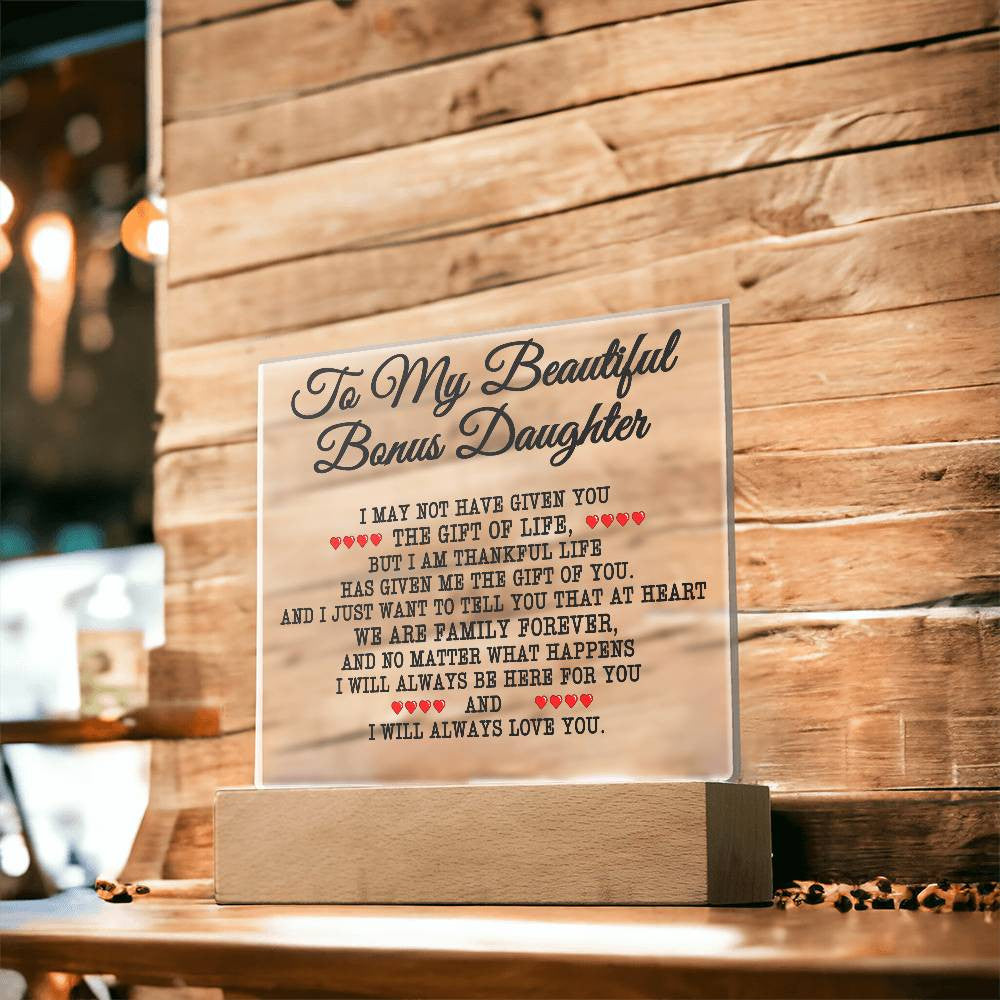 To My Beautiful
Bonus Daughter
I MAY NOT HAVE GIVEN YOU
THE GIFT OF LIFE,
BUT I AM THANKFUL LIFE
HAS GIVEN ME THE GIFT OF YOU.
AND I JUST WANT TO TELL YOU THAT AT HEART
WE ARE FAMILY FOREVER,
AND NO MATTER WHAT HAPPENS
I WILL ALWAYS BE HERE FOR YOU
AND
I WILL ALWAYS LOVE YOU.